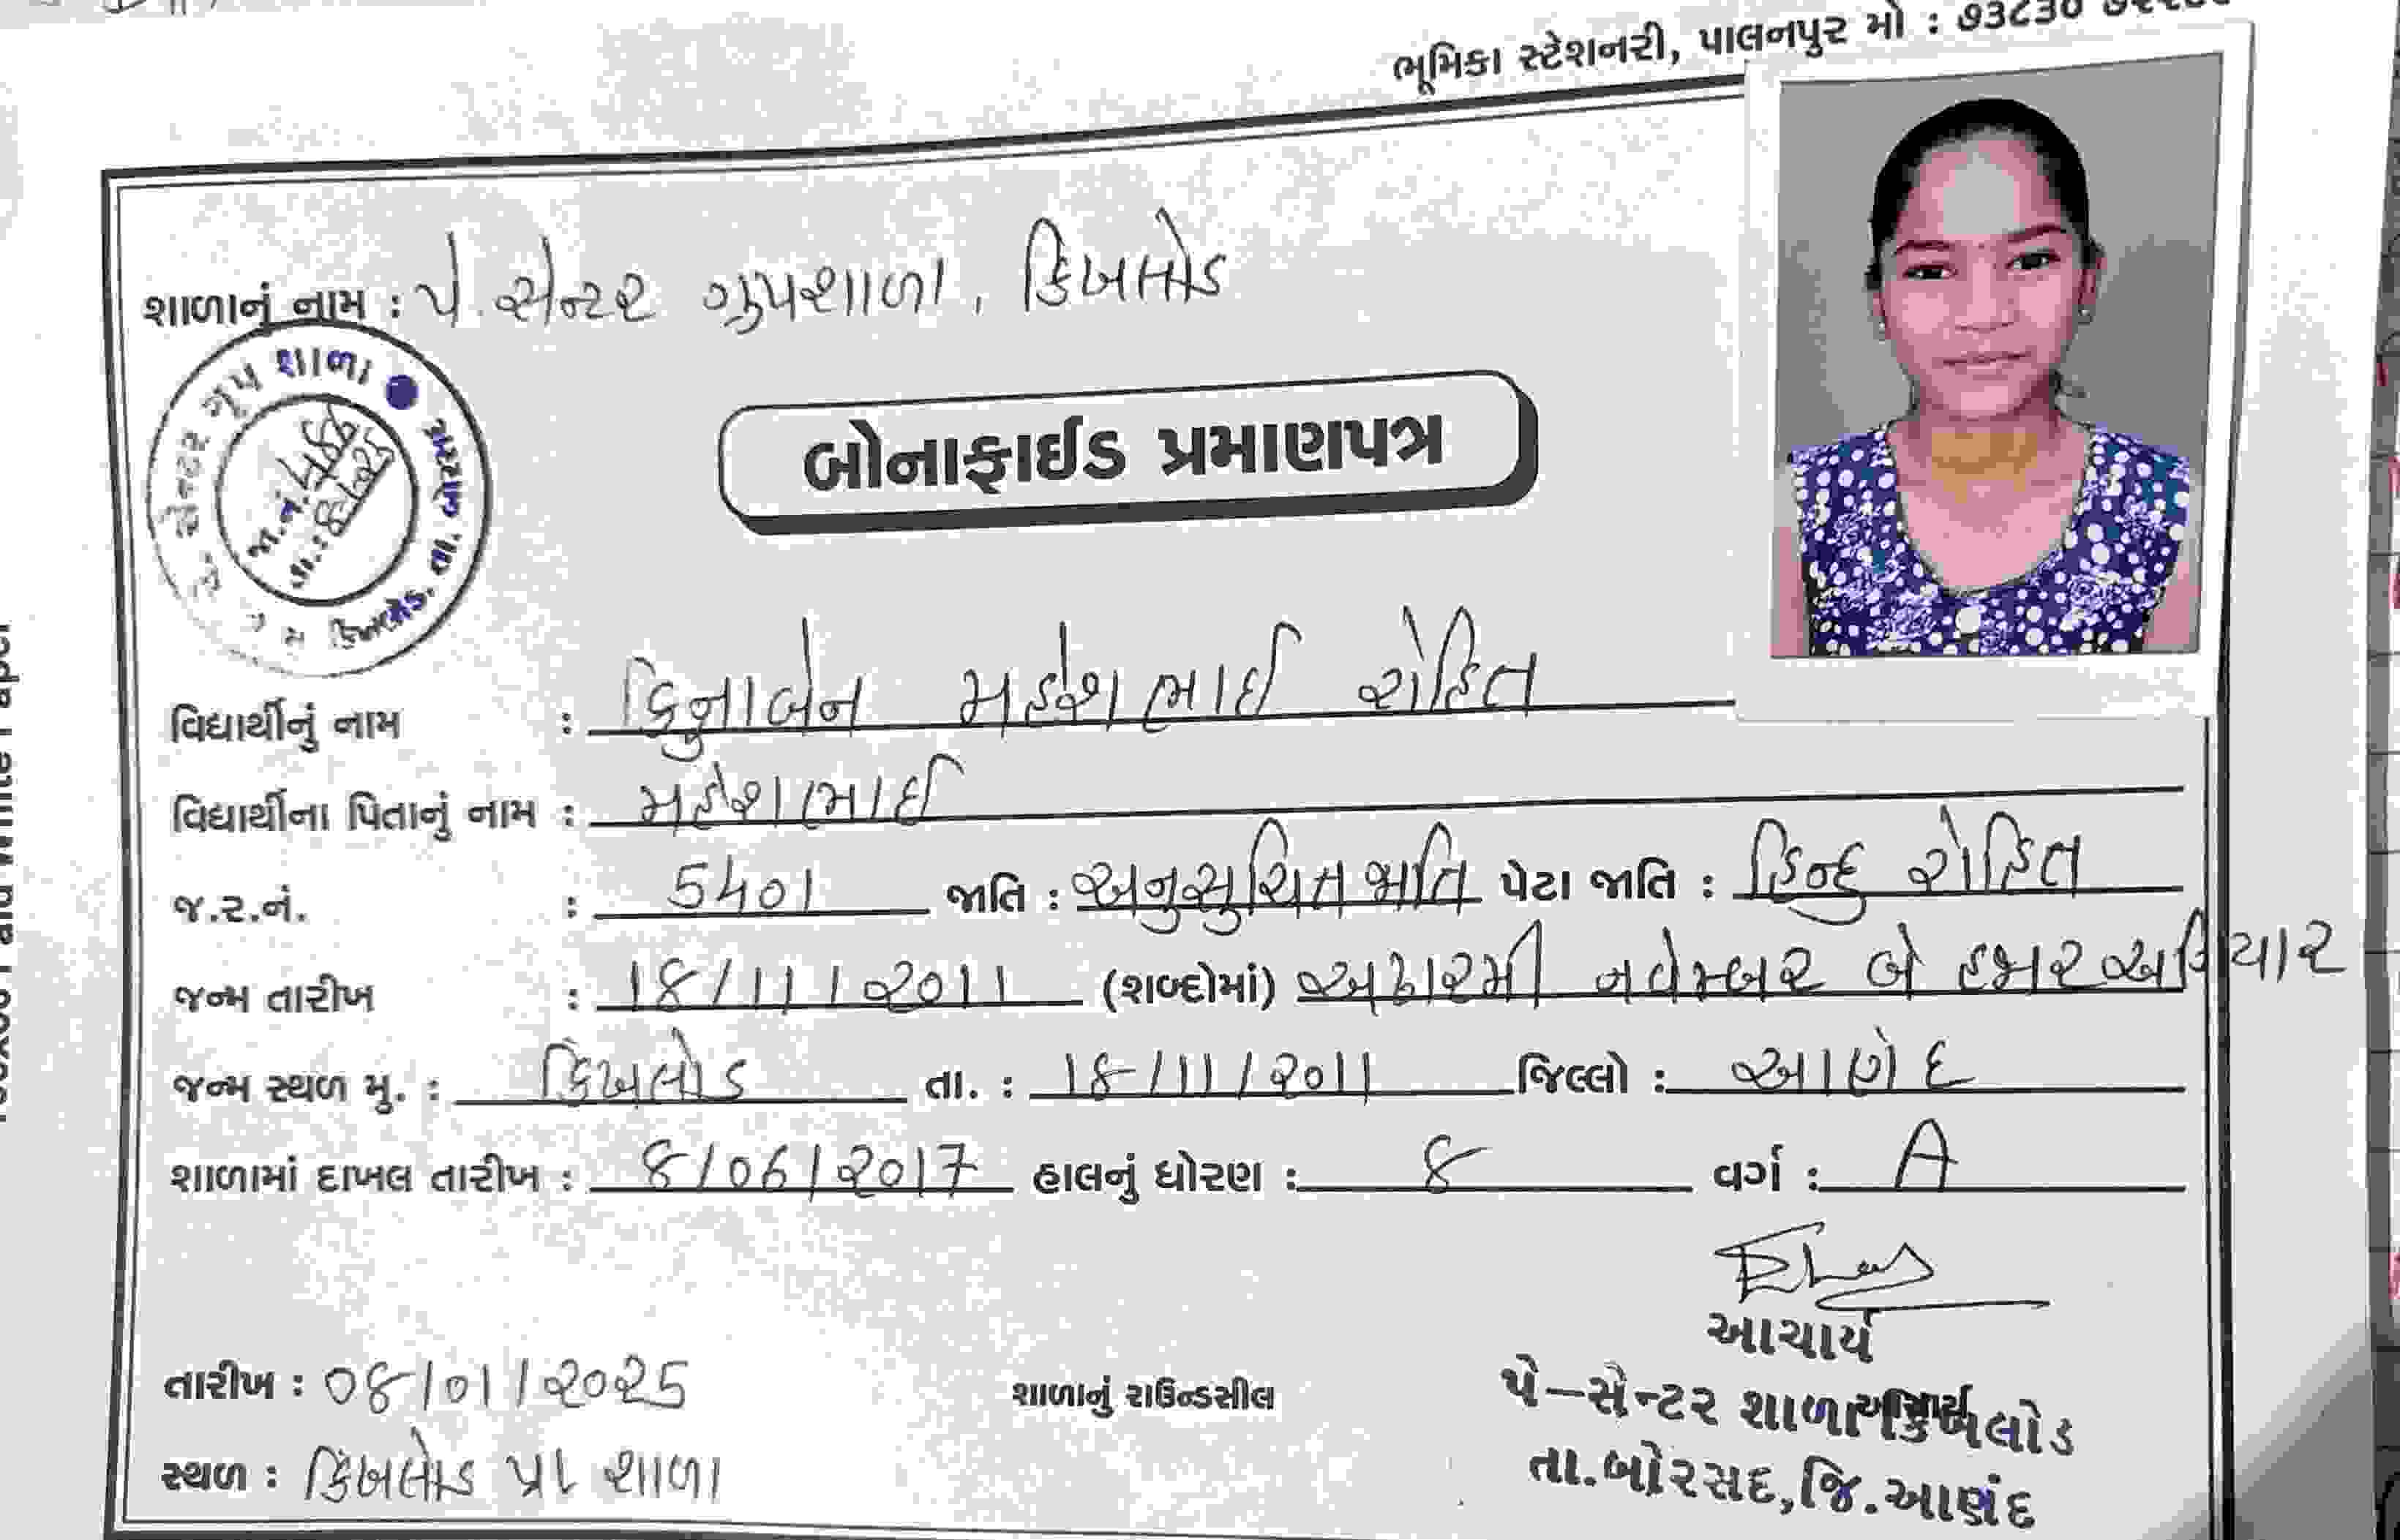 ભૂમિકા સ્ટેશનરી, પાલનપુર મો : ૭૩૮૩૦
શાળાનું નામ : પે. સેન્ટર ગ્રુપશાળા, કિંખલોડ
સેન્ટર ગ્રુપ શાળા કિંખલોડ. તા. બોરસદ
જા.નં.
તા.:
બોનાફાઈડ પ્રમાણપત્ર
વિદ્યાર્થીનું નામ : ક્રિનાબેન મહેશભાઈ રોહિત
વિદ્યાર્થીના પિતાનું નામ : મહેશભાઈ
જ.ર.નં. : 5401 જાતિ : અનુસુચિત જાતિ પેટા જાતિ : હિન્દુ રોહિત
જન્મ તારીખ : 1૮/11/2011 (શબ્દોમાં) અઢારમી નવેમ્બર બે હજાર અગિયાર
જન્મ સ્થળ મુ. : કિંખલોડ તા. : 1૮/11/2011 જિલ્લો : આણંદ
શાળામાં દાખલ તારીખ : ૮/06/2017 હાલનું ધોરણ : ૮ વર્ગ : A
આચાર્ય
તારીખ : 0૮/01/2025 શાળાનું રાઉન્ડસીલ આચાર્ય
પે-સેન્ટર શાળા કિંખલોડ
સ્થળ : કિંખલોડ પ્રા શાળા
તા.બોરસદ,જિ.આણંદ